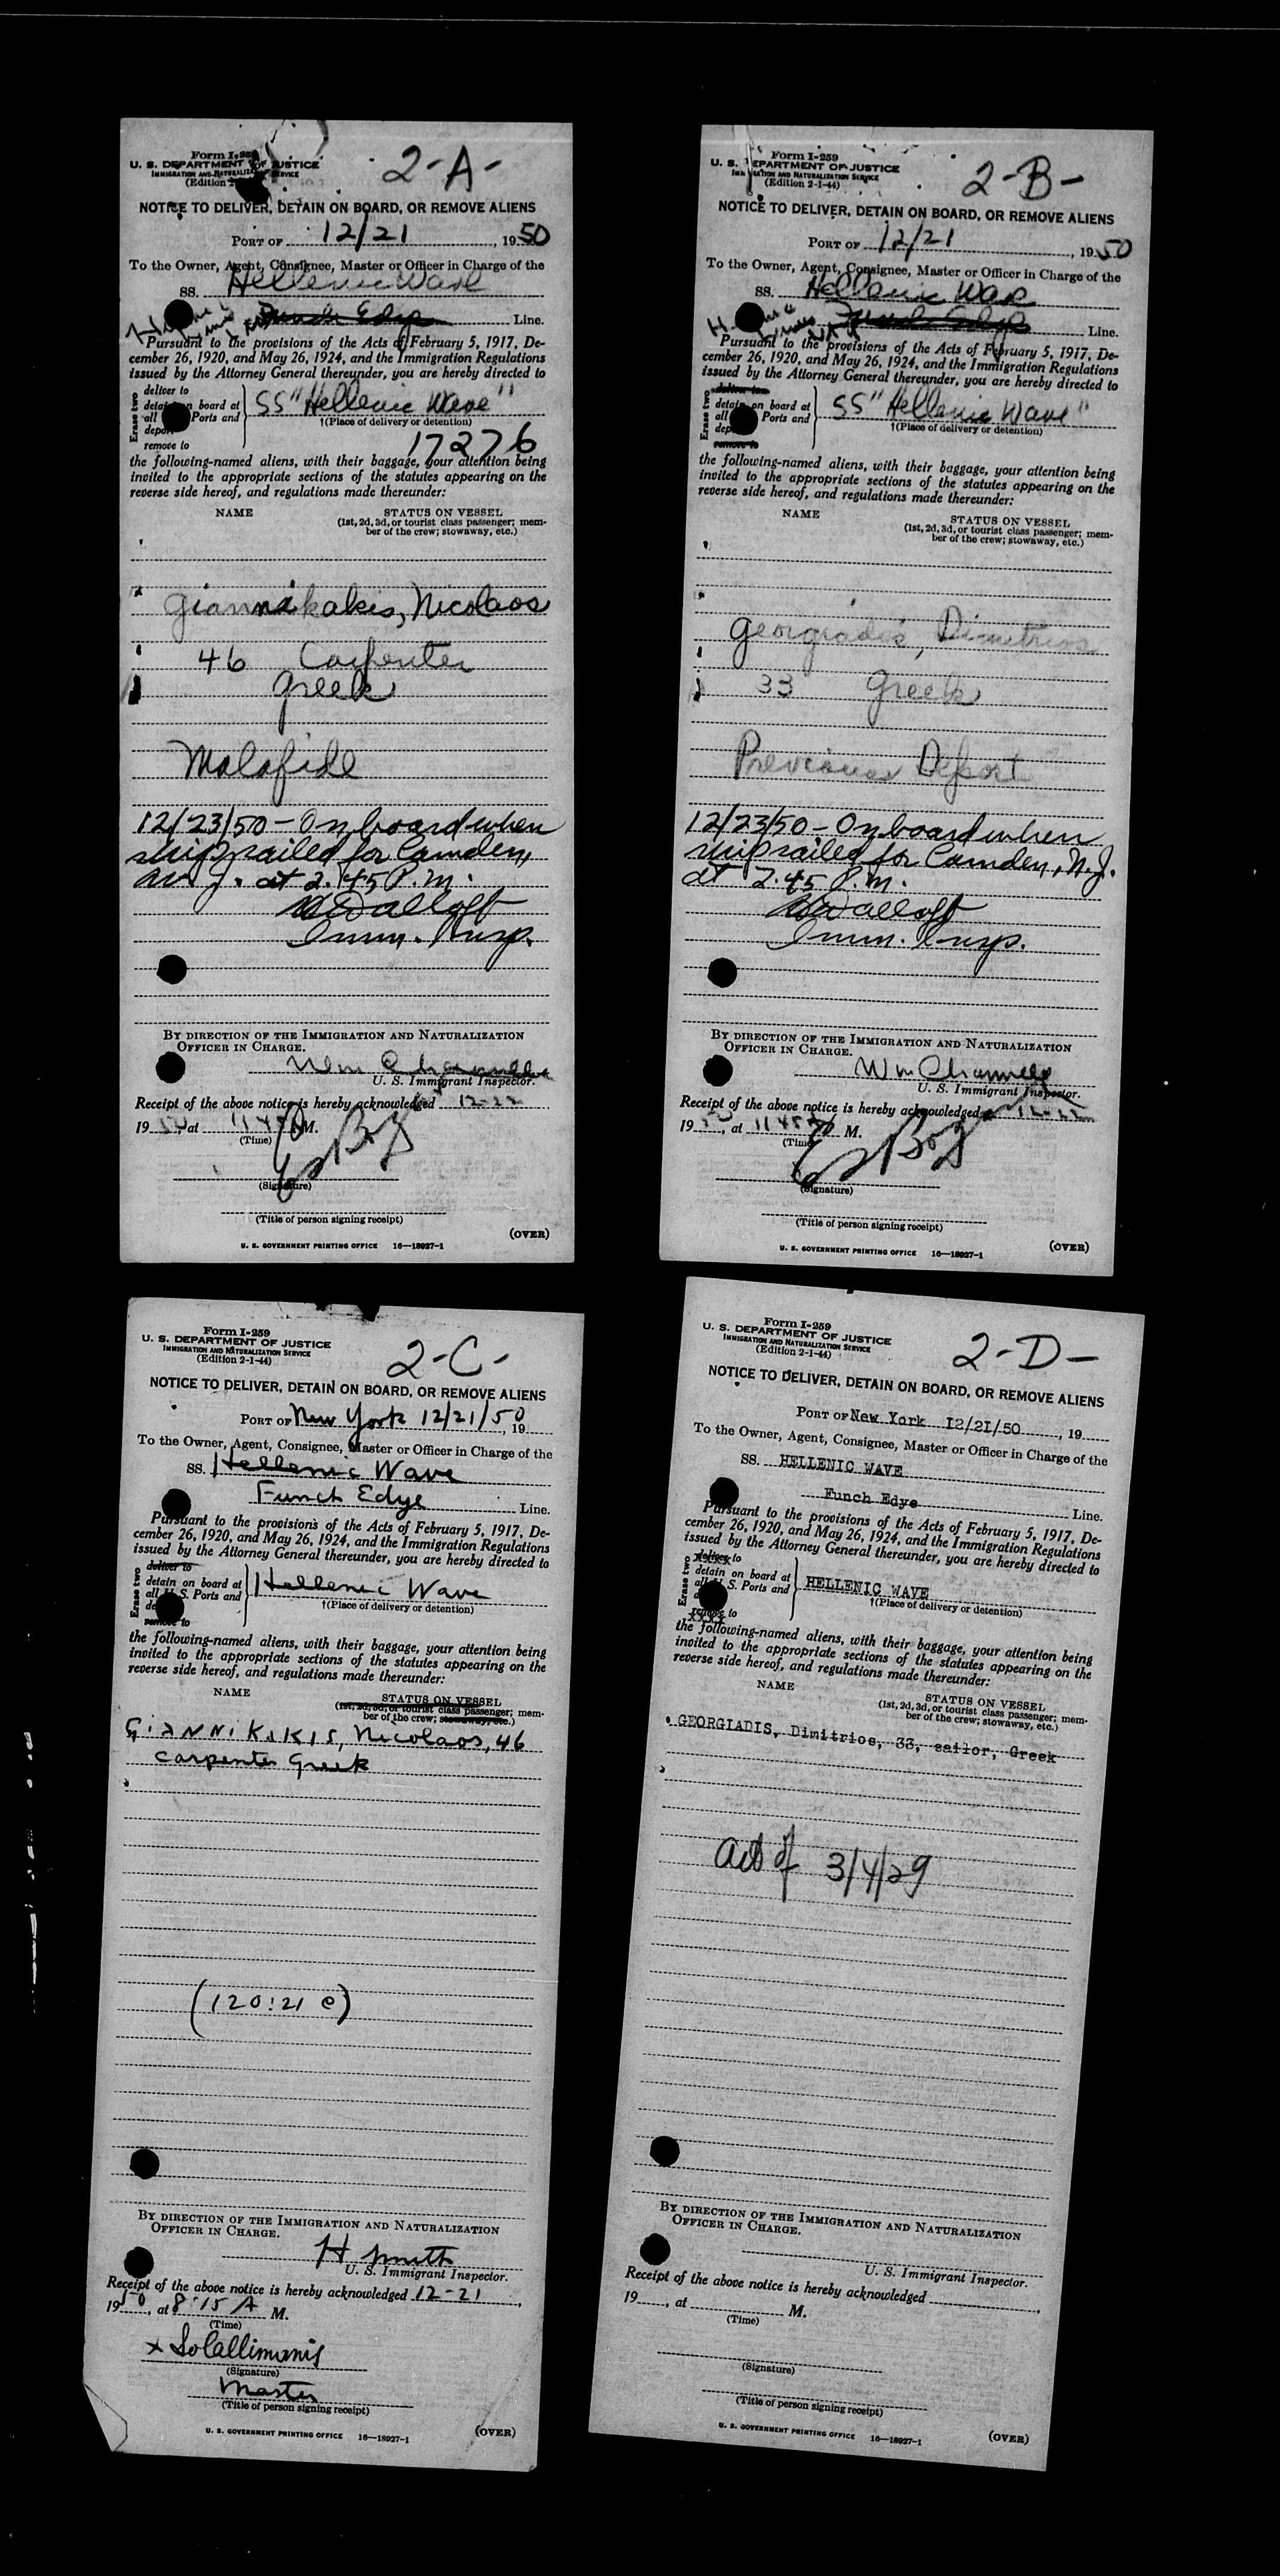 Form I-259
U. S. DEPARTMENT OF JUSTICE
IMMIGRATION AND NATURALIZATION SERVICE
(Edition
2-A-
NOTICE TO DELIVER, DETAIN ON BOARD, OR REMOVE ALIENS
PORT OF 12/21, 1950
To the Owner, Agent, Consignee, Master or Officer in Charge of the
SS. Hellenic Wave
Funch Edye Line.
Pursuant to the provisions of the Acts of February 5, 1917, De-
cember 26, 1920, and May 26, 1924, and the Immigration Regulations
issued by the Attorney General thereunder, you are hereby directed to
Erase two
deliver to
detain on board at
all Ports and
remove to
SS "Hellenic Wave"
†(Place of delivery or detention)
17276
the following-named aliens, with their baggage, your attention being
invited to the appropriate sections of the statutes appearing on the
reverse side hereof, and regulations made thereunder:
NAME STATUS ON VESSEL
(1st, 2d, 3d, or tourist class passenger; mem-
ber of the crew; stowaway, etc.)
Giannikakis, Nicolaos
46 Carpenter
Greek
Malafide
12/23/50 - On board when
ship sailed for Camden,
N. J. at 2.45 P.m.
Imm. Insp.
BY DIRECTION OF THE IMMIGRATION AND NATURALIZATION
OFFICER IN CHARGE.
Wm Channell
U. S. Immigrant Inspector.
Receipt of the above notice is hereby acknowledged 12-22
1950, at 1145 M.
(Time)
(Signature)
(Title of person signing receipt)
(OVER)
U. S. GOVERNMENT PRINTING OFFICE 16—18927-1
Form I-259
U. S. DEPARTMENT OF JUSTICE
IMMIGRATION AND NATURALIZATION SERVICE
(Edition 2-1-44)
2-B-
NOTICE TO DELIVER, DETAIN ON BOARD, OR REMOVE ALIENS
PORT OF 12/21, 1950
To the Owner, Agent, Consignee, Master or Officer in Charge of the
SS. Hellenic Wave
Funch Edye Line.
Pursuant to the provisions of the Acts of February 5, 1917, De-
cember 26, 1920, and May 26, 1924, and the Immigration Regulations
issued by the Attorney General thereunder, you are hereby directed to
Erase two
deliver to
detain on board at
all Ports and
remove to
SS "Hellenic Wave"
†(Place of delivery or detention)
the following-named aliens, with their baggage, your attention being
invited to the appropriate sections of the statutes appearing on the
reverse side hereof, and regulations made thereunder:
NAME STATUS ON VESSEL
(1st, 2d, 3d, or tourist class passenger; mem-
ber of the crew; stowaway, etc.)
Georgiadis, Dimitrios
33 Greek
Previous Deport
12/23/50 - On board when
ship sailed for Camden, N.J.
at 2.45 P.m.
Imm. Insp.
BY DIRECTION OF THE IMMIGRATION AND NATURALIZATION
OFFICER IN CHARGE.
Wm Channell
U. S. Immigrant Inspector.
Receipt of the above notice is hereby acknowledged 12-22
1950, at 1145 M.
(Time)
(Signature)
(Title of person signing receipt)
(OVER)
U. S. GOVERNMENT PRINTING OFFICE 16—18927-1
Form I-259
U. S. DEPARTMENT OF JUSTICE
IMMIGRATION AND NATURALIZATION SERVICE
(Edition 2-1-44)
2-C-
NOTICE TO DELIVER, DETAIN ON BOARD, OR REMOVE ALIENS
PORT OF New York 12/21/50, 19
To the Owner, Agent, Consignee, Master or Officer in Charge of the
SS. Hellenic Wave
Funch Edye Line.
Pursuant to the provisions of the Acts of February 5, 1917, De-
cember 26, 1920, and May 26, 1924, and the Immigration Regulations
issued by the Attorney General thereunder, you are hereby directed to
Erase two
deliver to
detain on board at
all U. S. Ports and
remove to
Hellenic Wave
†(Place of delivery or detention)
the following-named aliens, with their baggage, your attention being
invited to the appropriate sections of the statutes appearing on the
reverse side hereof, and regulations made thereunder:
NAME STATUS ON VESSEL
(1st, 2d, 3d, or tourist class passenger; mem-
ber of the crew; stowaway, etc.)
GIANNIKAKIS, Nicolaos, 46
carpenter Greek
(120:21 e)
BY DIRECTION OF THE IMMIGRATION AND NATURALIZATION
OFFICER IN CHARGE.
H Smith
U. S. Immigrant Inspector.
Receipt of the above notice is hereby acknowledged 12-21,
1950, at 8:15 A M.
(Time)
(Signature)
Master
(Title of person signing receipt)
U. S. GOVERNMENT PRINTING OFFICE 16—18927-1 (OVER)
Form I-259
U. S. DEPARTMENT OF JUSTICE
IMMIGRATION AND NATURALIZATION SERVICE
(Edition 2-1-44)
2-D-
NOTICE TO DELIVER, DETAIN ON BOARD, OR REMOVE ALIENS
PORT OF New York 12/21/50, 19
To the Owner, Agent, Consignee, Master or Officer in Charge of the
SS. HELLENIC WAVE
Funch Edye Line.
Pursuant to the provisions of the Acts of February 5, 1917, De-
cember 26, 1920, and May 26, 1924, and the Immigration Regulations
issued by the Attorney General thereunder, you are hereby directed to
Erase two
deliver to
detain on board at
all U. S. Ports and
remove to
HELLENIC WAVE
†(Place of delivery or detention)
the following-named aliens, with their baggage, your attention being
invited to the appropriate sections of the statutes appearing on the
reverse side hereof, and regulations made thereunder:
NAME STATUS ON VESSEL
(1st, 2d, 3d, or tourist class passenger; mem-
ber of the crew; stowaway, etc.)
GEORGIADIS, Dimitrios, 33, sailor, Greek
Act of 3/4/29
BY DIRECTION OF THE IMMIGRATION AND NATURALIZATION
OFFICER IN CHARGE.
U. S. Immigrant Inspector.
Receipt of the above notice is hereby acknowledged ,
19 , at M.
(Time)
(Signature)
(Title of person signing receipt)
U. S. GOVERNMENT PRINTING OFFICE 16—18927-1 (OVER)